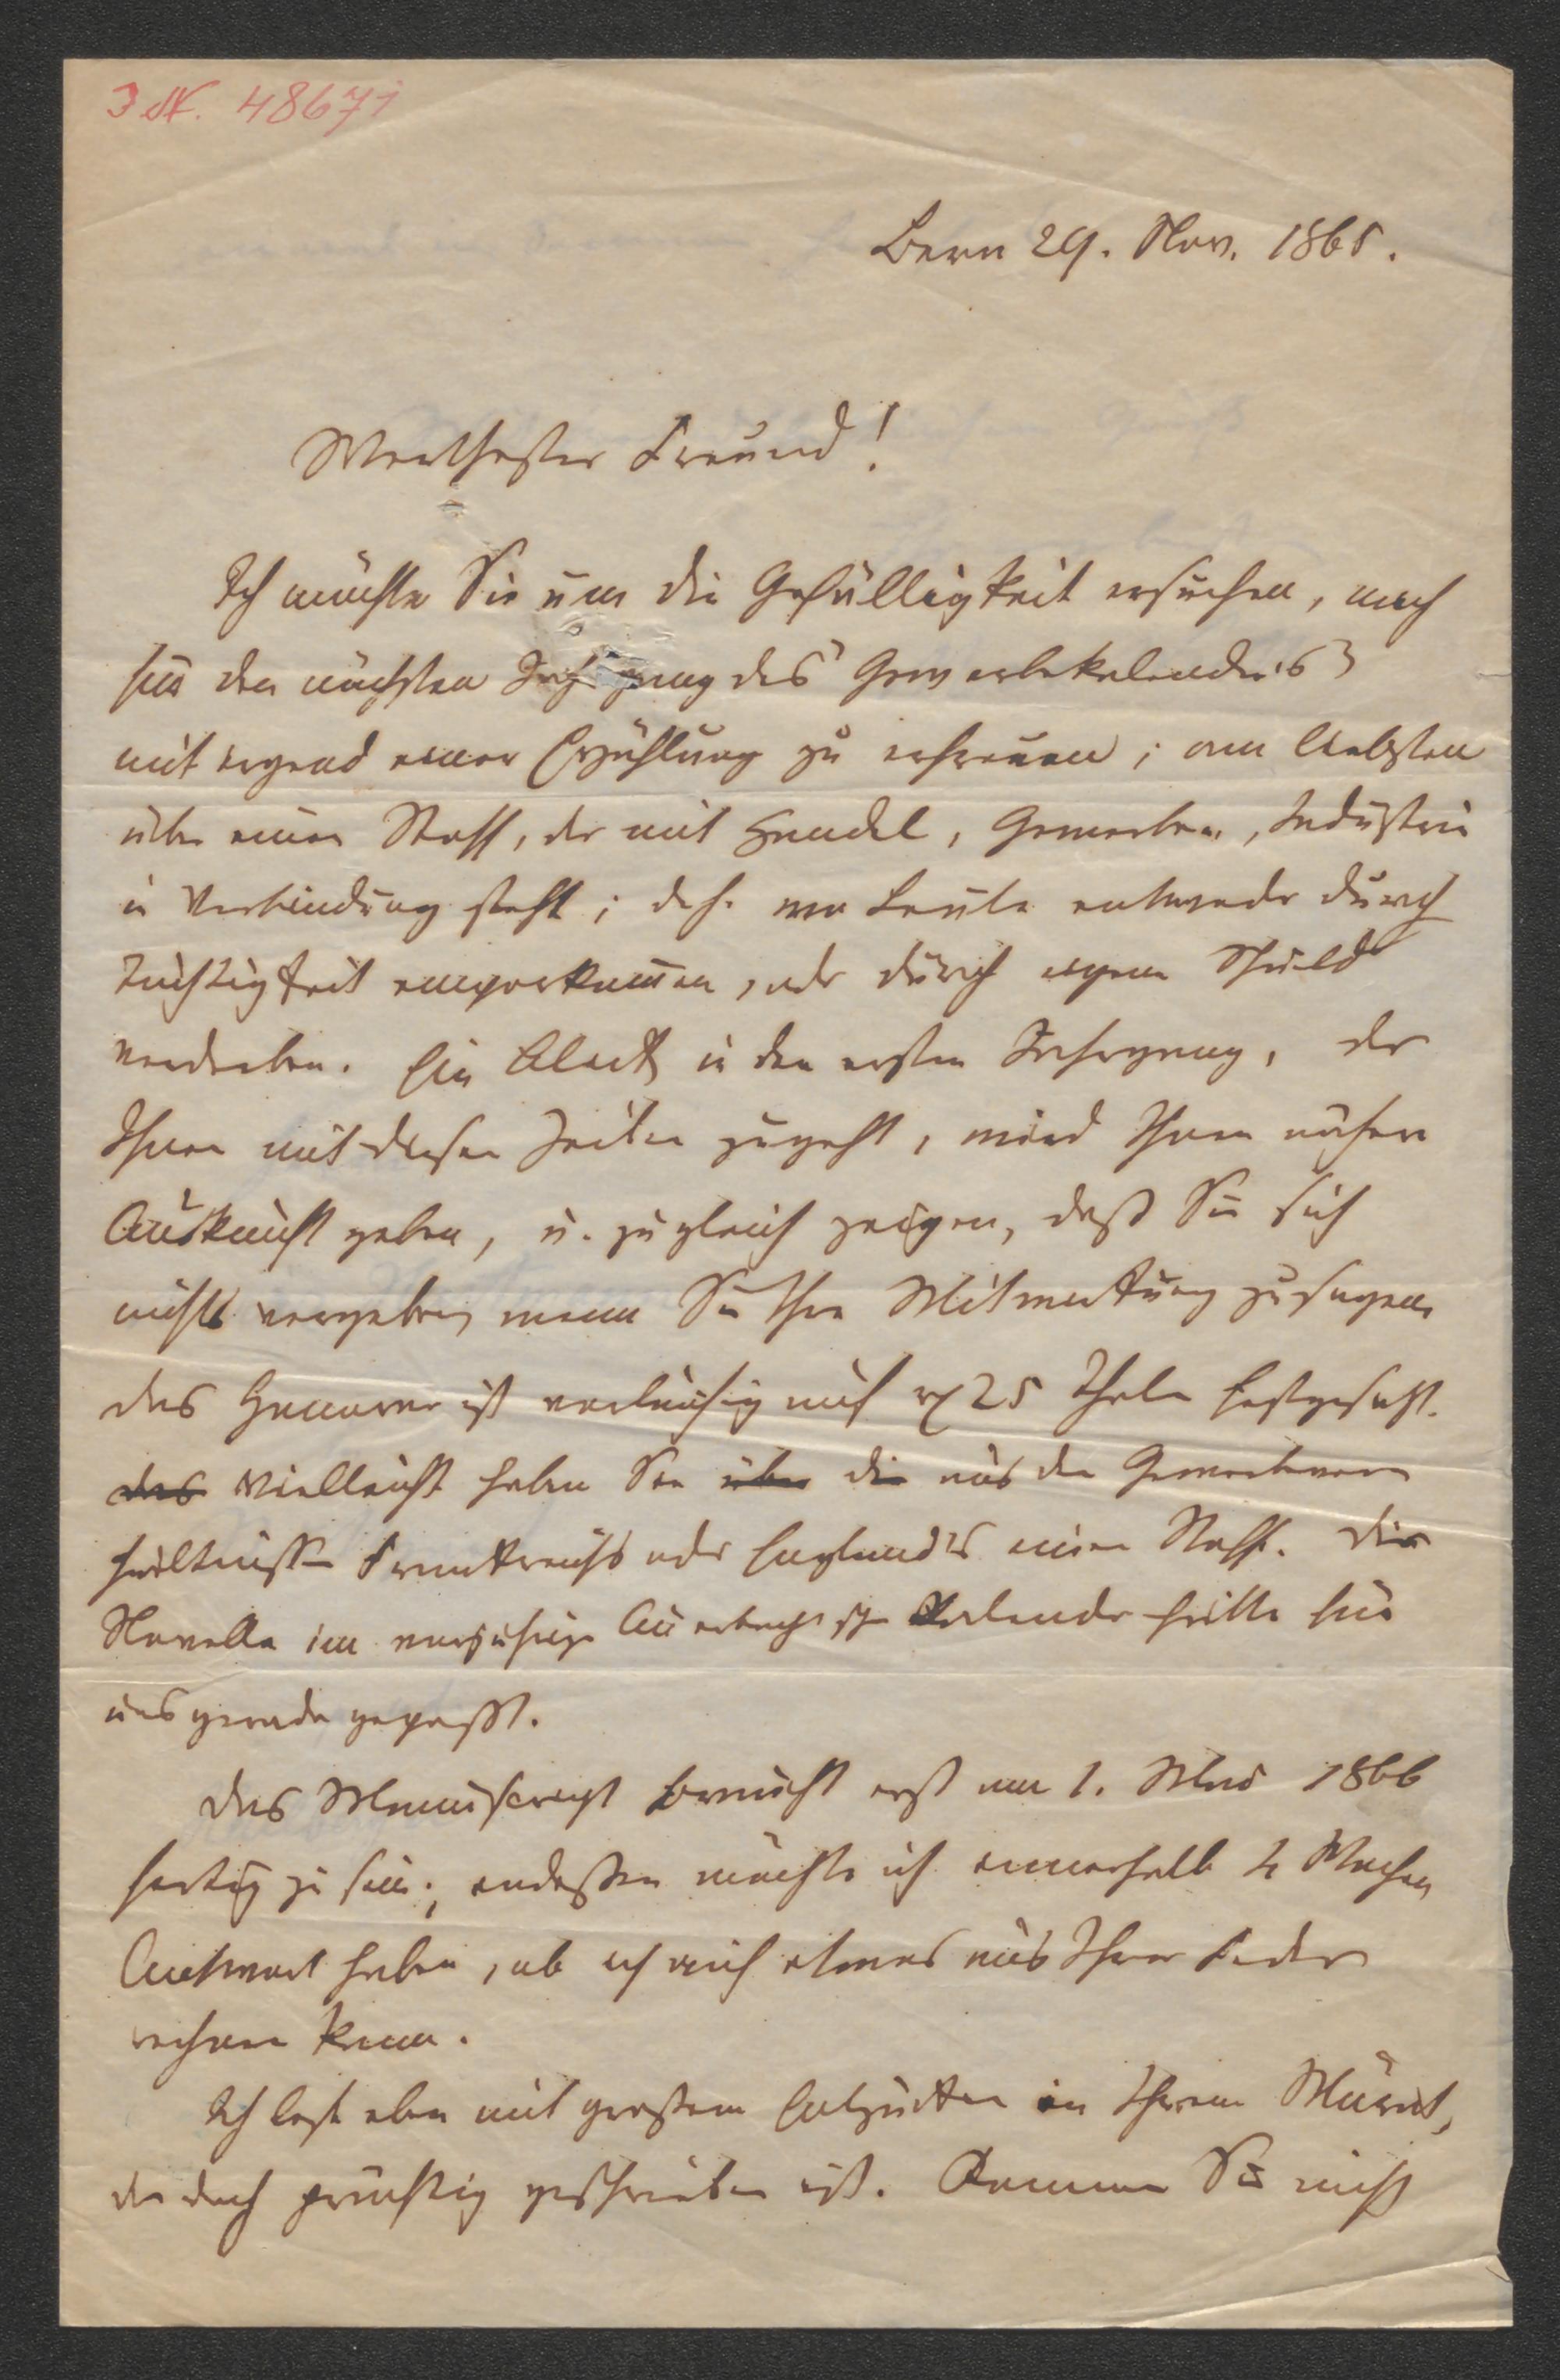 I. N. 48671
Bern 29. Nov. 1865.
Werthester Freund!
Ich möchte Sie um die Gefälligkeit ersuchen, mich
für den nächsten Jahrgang des Gewerbekalenders
mit irgend einer Erzählung zu erfreuen; am liebsten
über einen Stoff, der mit Handel, Gewerben, Industrie
in Verbindung steht; d. h. wo Leute entweder durch
Tüchtigkeit emporkommen, oder durch eigene Schuld
verderben. Ein Blick in den ersten Jahrgang, der
Ihnen mit diesen Zeilen zugeht, wird Ihnen nähere
Auskunft geben, u. zugleich zeigen, daß Sie sich
nichts vergeben, wenn Sie Ihre Mitwirkung zusagen.
Das Honorar ist vorläufig auf 25 Thaler festgesetzt.
das Vielleicht haben Sie über die aus den Gewerbever
hältnissen Frankreichs oder Englands einen Stoff. Die
Novelle im Auerbach'schen Kalender hätte für
uns gerade gepaßt.
Das Manuscript braucht erst am 1. Mai 1866
fertig zu sein; indessen möchte ich innerhalb 4 Wochen
Antwort haben, ob ich auf etwas aus Ihrer Feder
rechnen kann.
Ich lese eben mit großem Entzücken in Ihrem
der doch prächtig geschrieben ist. Kommen Sie nicht